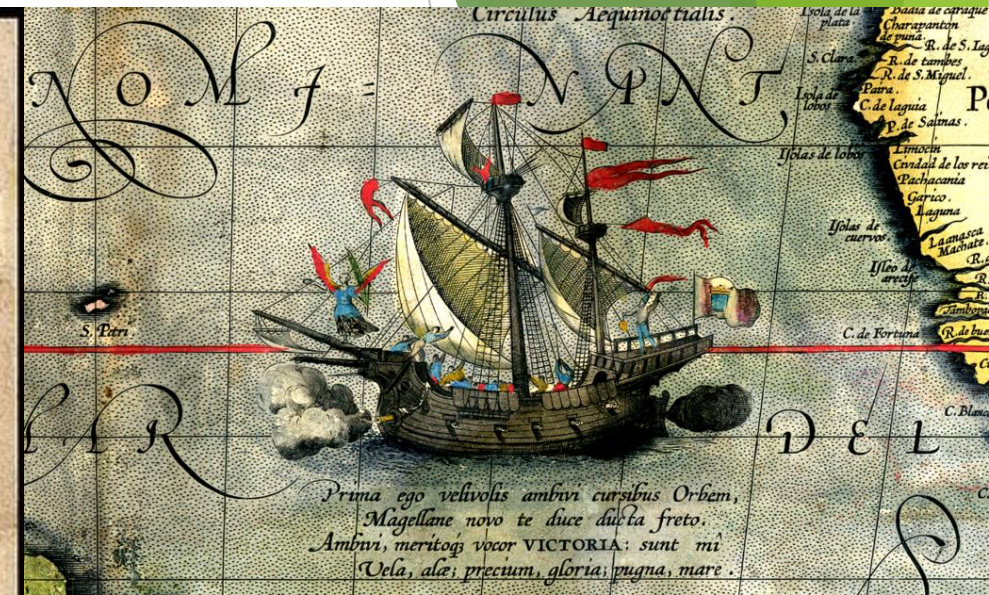 Circulus Aequinoctialis.
NOMI=NPNT,
S. Petri
MAR DEL
Prima ego velivolis ambivi cursibus Orbem,
Magellane novo te duce ducta freto.
Ambivi, meritoq́ꝫ vocor VICTORIA: sunt mî
Vela, alæ; precium, gloria; pugna, mare.
Isola de la plata.
Badia de caraque
Charapanton
de puna.
R. de S. Iag
S. Clara.
R. de tambes
R. de S. Miquel.
Isola de lobos
Paira.
C. de laguia
P. de Salinas.
Isolas de lobos
Limocin
Cividad de los rei
Pachacania
Garico.
Laguna
Isolas de cuervos.
Laanasca
Machate.
Isleo de arecife
Tambora
C. de Fortuna
R. de bue
C. Blanc